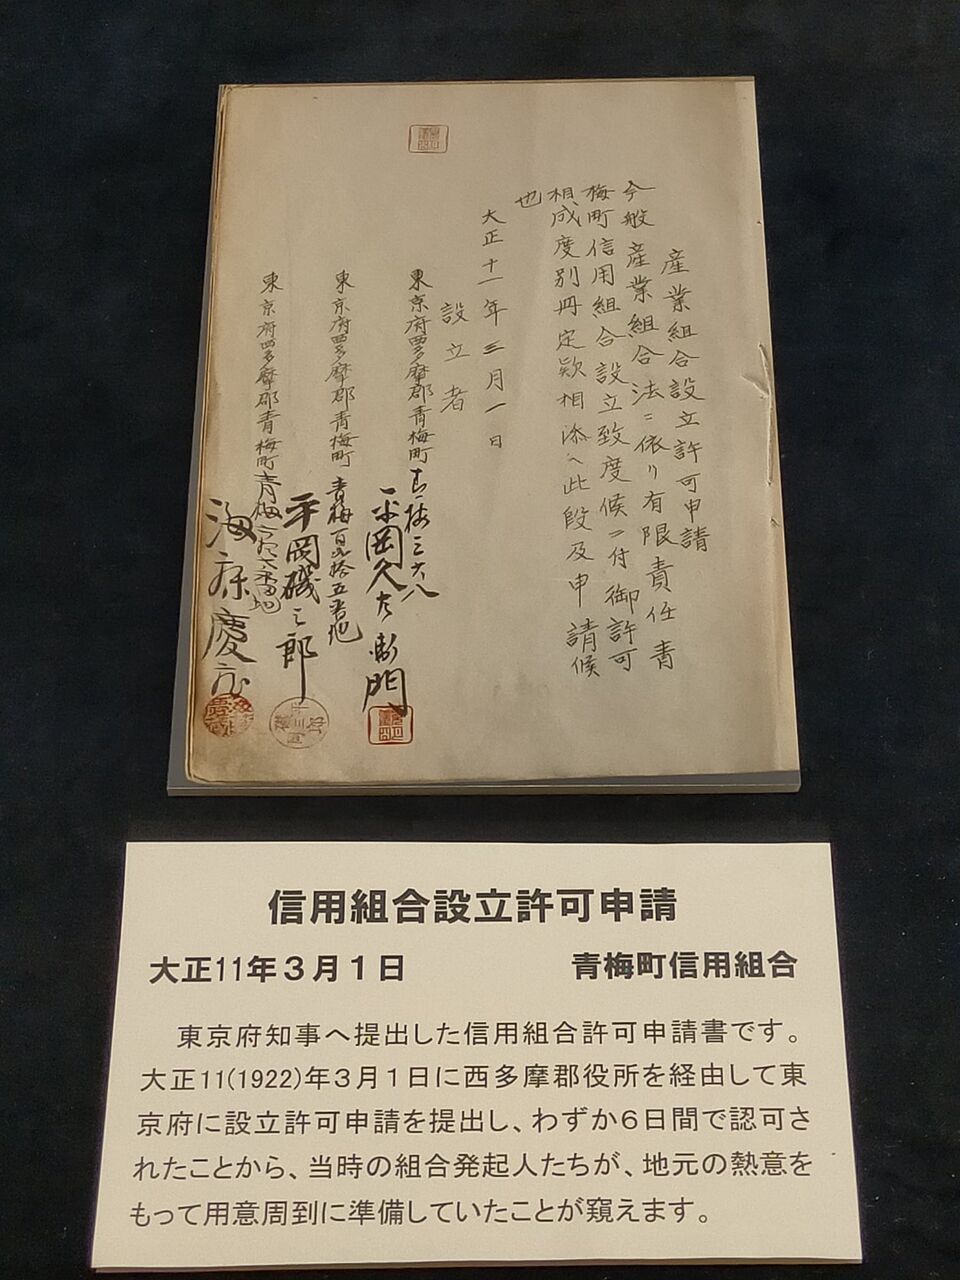 産業組合設立許可申請
今般産業組合法ニ依リ有限責任青
梅町信用組合設立致度候ニ付御許可
相成度別冊定款相添ヘ此段及申請候
也
大正十一年三月一日
設立者
東京府西多摩郡青梅町
平岡久左衛門
東京府西多摩郡青梅町青梅百四拾五番地
平岡磯之郎
東京府西多摩郡青梅町青梅
信用組合設立許可申請
大正11年３月１日 青梅町信用組合
東京府知事へ提出した信用組合許可申請書です。
大正11(1922)年３月１日に西多摩郡役所を経由して東
京府に設立許可申請を提出し、わずか６日間で認可さ
れたことから、当時の組合発起人たちが、地元の熱意を
もって用意周到に準備していたことが窺えます。